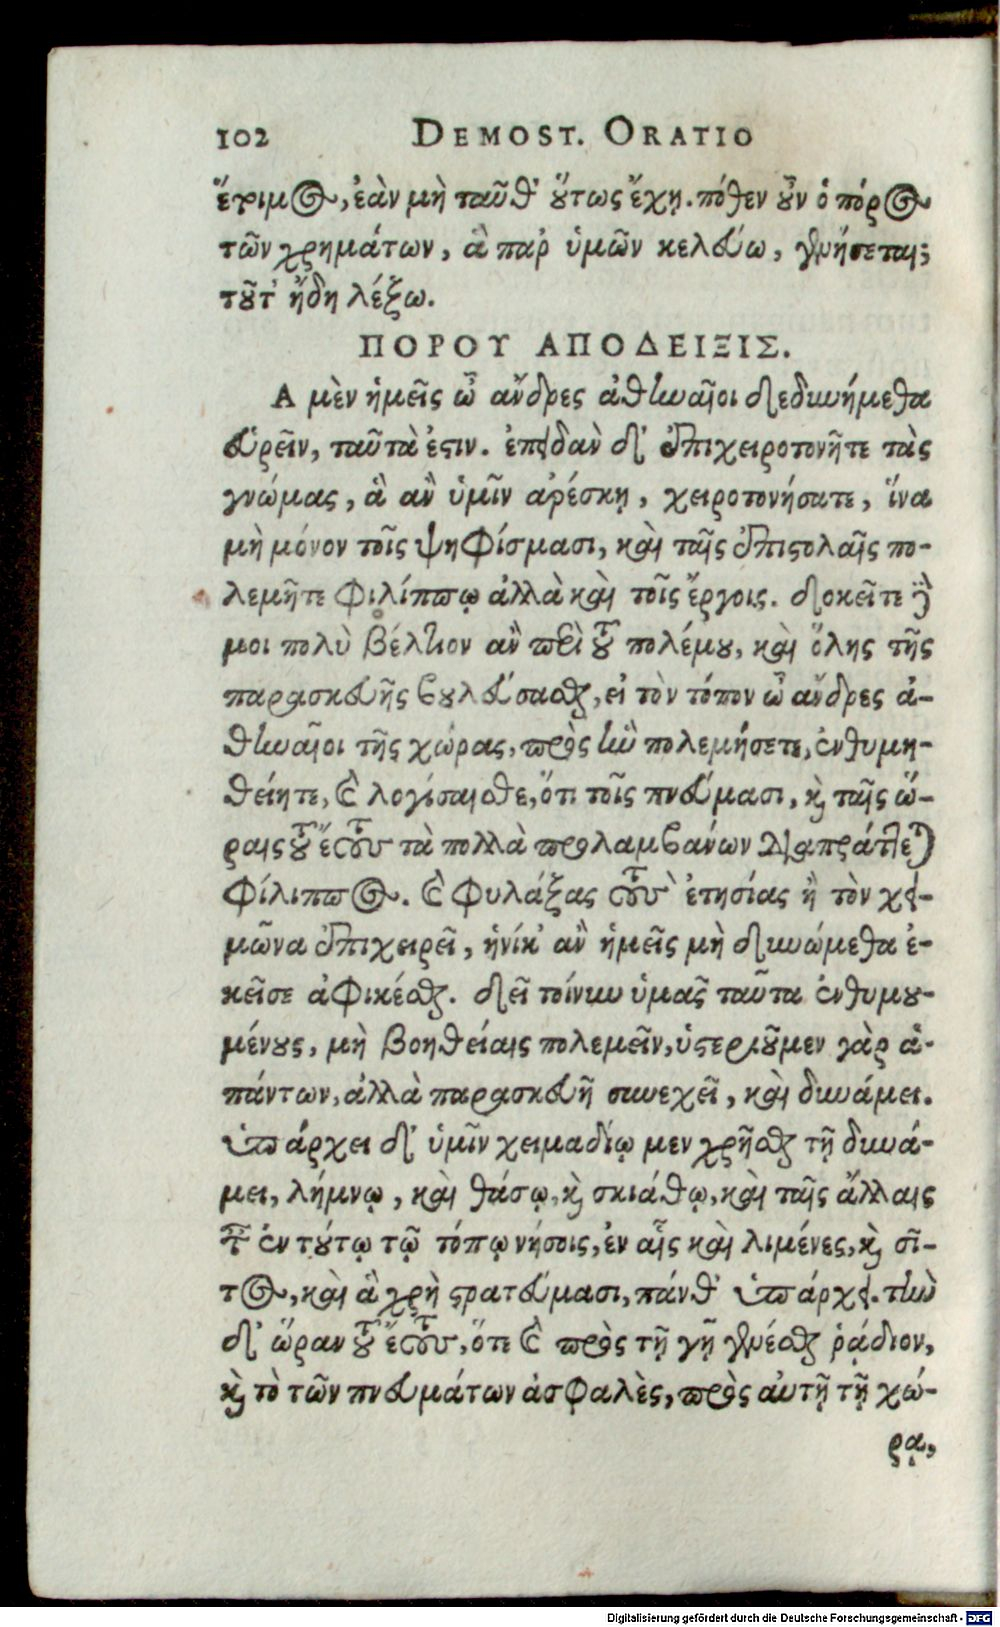 102 DEMOST. ORATIO
ἕτοιμος, ἐὰν μὴ ταῦθ' οὕτως ἔχῃ. πόθεν οὖν ὁ πόρος
τῶν χρημάτων, ἃ παρ' ὑμῶν κελεύω, γενήσεται;
τοῦτ' ἤδη λέξω.
ΠΟΡΟΥ ΑΠΟΔΕΙΞΙΣ.
Α μὲν ἡμεῖς ὦ ἄνδρες ἀθηναῖοι δεδυνήμεθα
εὑρεῖν, ταῦτά ἐστιν. ἐπειδὰν δ' ἐπιχειροτονῆτε τὰς
γνώμας, ἃ ἂν ὑμῖν ἀρέσκῃ, χειροτονήσατε, ἵνα
μὴ μόνον τοῖς ψηφίσμασι, καὶ ταῖς ἐπιστολαῖς πο-
λεμῆτε φιλίππῳ ἀλλὰ καὶ τοῖς ἔργοις. δοκεῖτε δέ
μοι πολὺ βέλτιον ἂν περὶ τοῦ πολέμου, καὶ ὅλης τῆς
παρασκευῆς βουλεύσασθαι, εἰ τὸν τόπον ὦ ἄνδρες ἀ-
θηναῖοι τῆς χώρας, πρὸς ἣν πολεμήσετε, ἐνθυμη-
θείητε, καὶ λογίσαισθε, ὅτι τοῖς πνεύμασι, καὶ ταῖς ὥ-
ραις τοῦ ἔτους τὰ πολλὰ προλαμβάνων διαπράττεται
φίλιππος. καὶ φυλάξας τοὺς ἐτησίας ἢ τὸν χει-
μῶνα ἐπιχειρεῖ, ἡνίκ' ἂν ἡμεῖς μὴ δυνώμεθα ἐ-
κεῖσε ἀφικέσθαι. δεῖ τοίνυν ὑμᾶς ταῦτα ἐνθυμου-
μένους, μὴ βοηθείαις πολεμεῖν, ὑστεριοῦμεν γὰρ ἁ-
πάντων, ἀλλὰ παρασκευῇ συνεχεῖ, καὶ δυνάμει.
ὑπάρχει δ' ὑμῖν χειμαδίῳ μεν χρῆσθαι τῇ δυνά-
μει, λήμνῳ, καὶ θάσῳ, καὶ σκιάθῳ, καὶ ταῖς ἄλλαις
τῶν ἐν τούτῳ τῷ τόπῳ νήσοις, ἐν αἷς καὶ λιμένες, καὶ σῖ-
τος, καὶ ἃ χρὴ στρατεύμασι, πάνθ' ὑπάρχει. τὴν
δ' ὥραν τοῦ ἔτους, ὅτε καὶ πρὸς τῇ γῇ γενέσθαι ῥᾴδιον,
καὶ τὸ τῶν πνευμάτων ἀσφαλὲς, πρὸς αὐτῇ τῇ χώ-
ρᾳ,
Digitalisierung gefördert durch die Deutsche Forschungsgemeinschaft - DFG